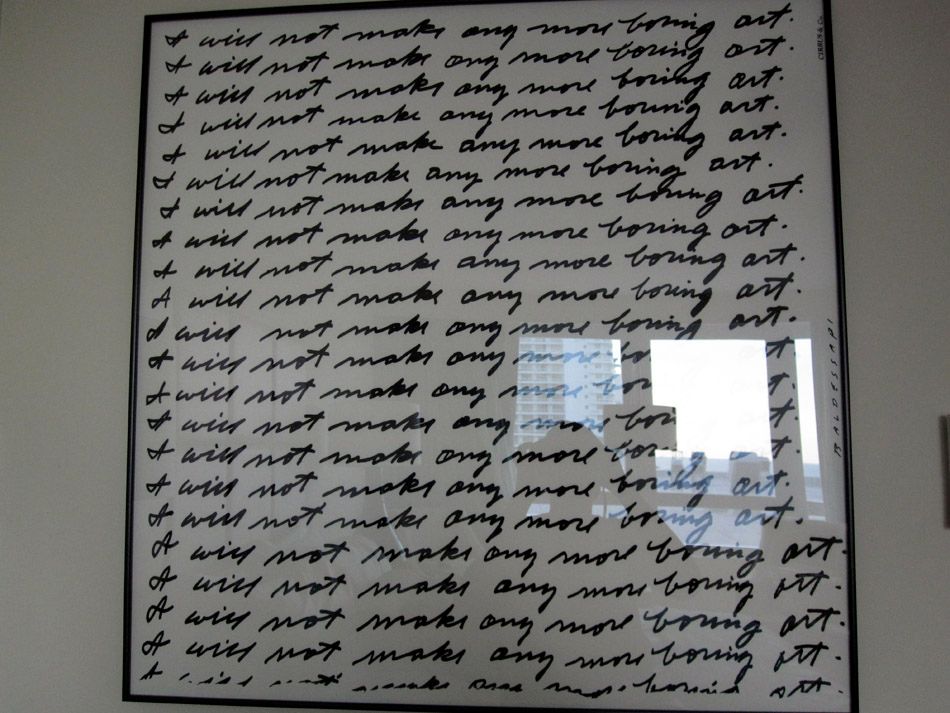 I will not make any more boring art.
I will not make any more boring art.
I will not make any more boring art.
I will not make any more boring art.
I will not make any more boring art.
I will not make any more boring art.
I will not make any more boring art.
I will not make any more boring art.
I will not make any more boring art.
I will not make any more boring art.
I will not make any more boring art.
I will not make any more
I will not make any more
I will not make any more
I will not make any more art.
I will not make any more boring art.
I will not make any more boring art.
I will not make any more boring art.
I will not make any more boring art.
I will not make any more boring art.
I will not make any more boring art.
I will not make any more boring art.
CIRRUS & Co.
BALDESSARI